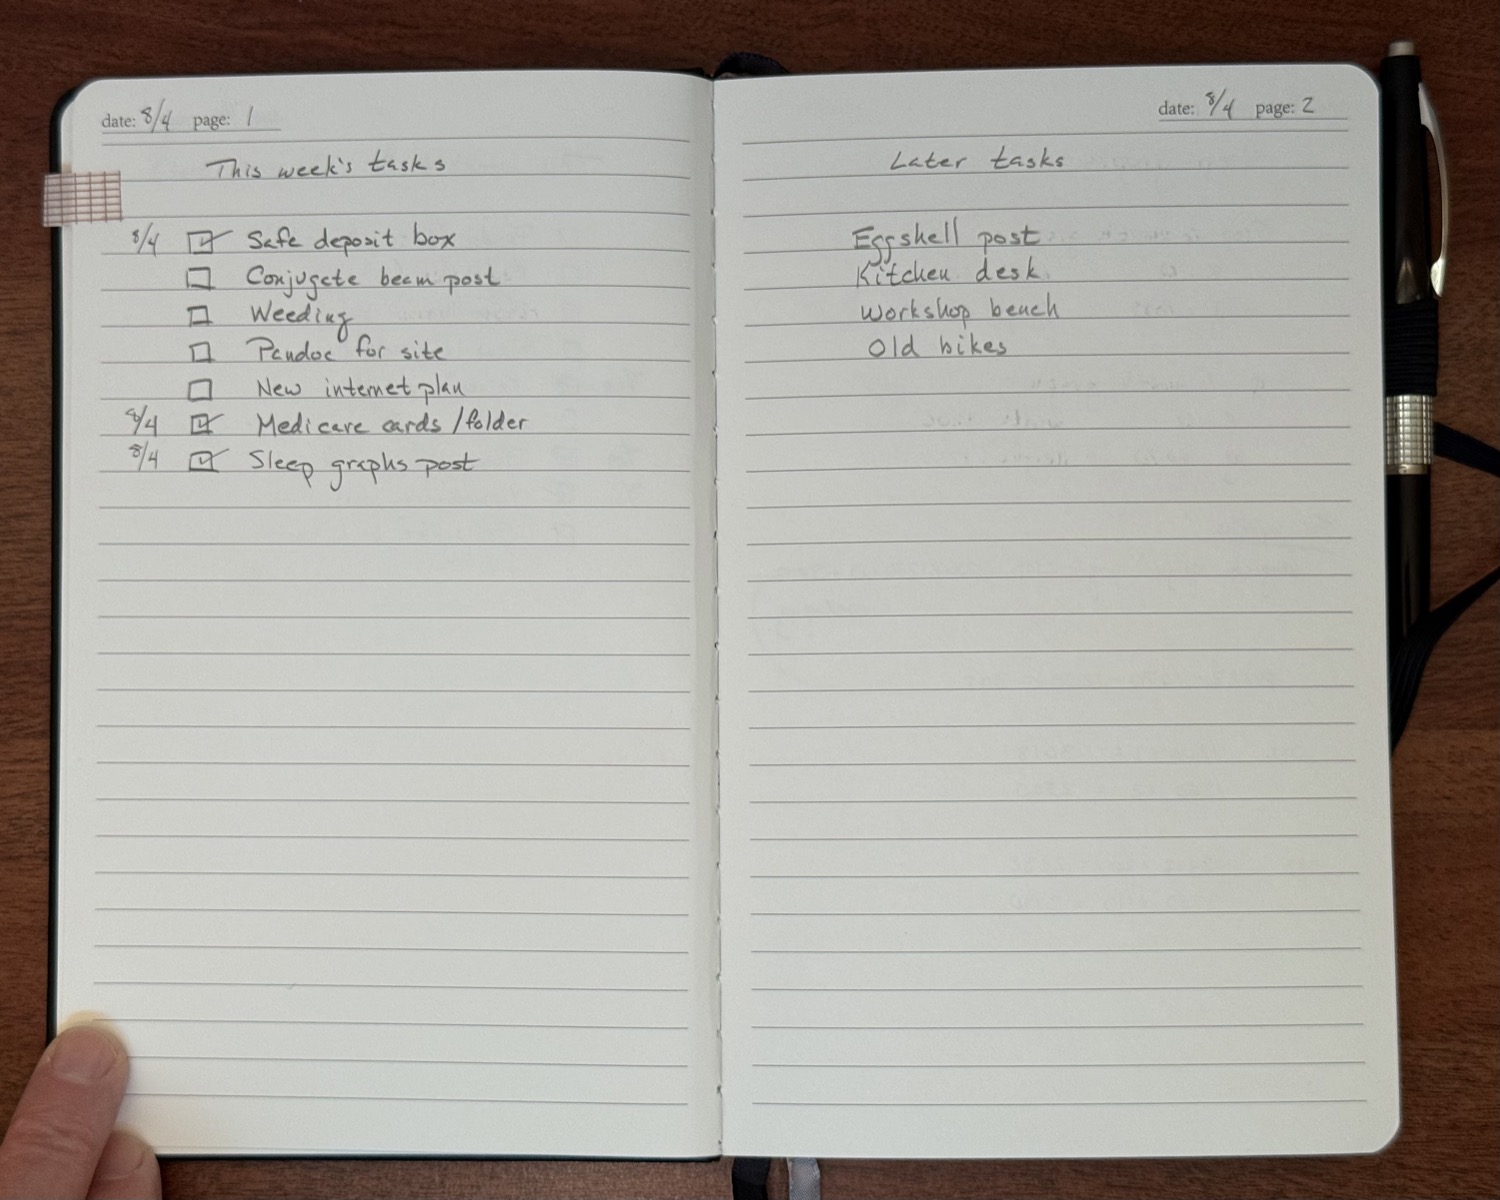 date: 8/4 page: 1
This week's tasks
8/4 ☑ Safe deposit box
☐ Conjugate beam post
☐ Weeding
☐ Pandoc for site
☐ New internet plan
8/4 ☑ Medicare cards/folder
8/4 ☑ Sleep graphs post
date: 8/4 page: 2
Later tasks
Eggshell post
Kitchen desk
Workshop bench
Old bikes